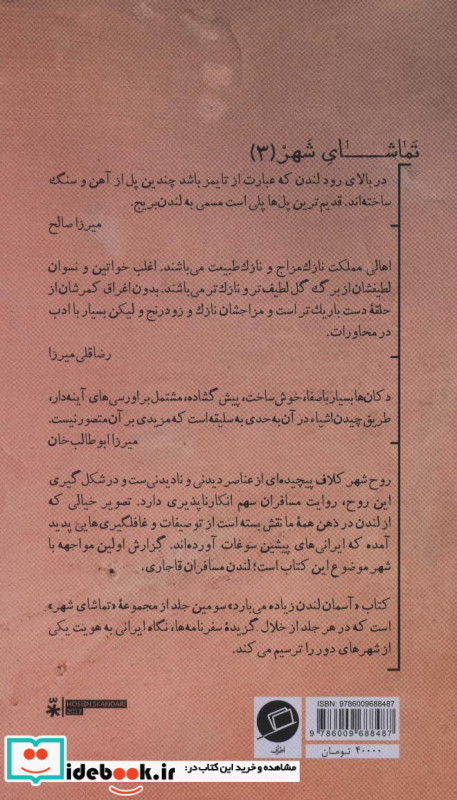 تماشای شهر (۳)
در بالای رود لندن که عبارت از تایمز باشد چندین پل از آهن و سنگ
ساخته‌اند. قدیم‌ترین پل‌ها پلی است مسمی به لندن‌بریج.
میرزا صالح
اهالی مملکت نازک‌مزاج و نازک‌طبیعت می‌باشند. اغلب خواتین و نسوان
لطیفشان از برگ گل لطیف‌تر و نازک‌تر می‌باشند. بدون اغراق کمرشان از
حلقهٔ دست باریک‌تر است و مزاجشان نازک و زودرنج و لیکن بسیار با ادب
در محاورات.
رضاقلی میرزا
دکان‌ها بسیار باصفا، خوش‌ساخت، پیش‌گشاده، مشتمل بر اورسی‌های آینه‌دار،
طریق چیدن اشیاء در آن به حدی به سلیقه است که مزیدی بر آن متصور نیست.
میرزا ابوطالب‌خان
روح شهر کلاف پیچیده‌ای از عناصر دیدنی و نادیدنی‌ست و در شکل گیری
این روح، روایت مسافران سهم انکارناپذیری دارد. تصویر خیالی که
از لندن در ذهن همهٔ ما نقش بسته است از توصیفات و غافلگیری‌هایی پدید
آمده که ایرانی‌های پیشین سوغات آورده‌اند. گزارش اولین مواجهه با
شهر موضوع این کتاب است؛ لندن مسافران قاجاری.
کتاب «آسمان لندن زیاده می‌بارد» سومین جلد از مجموعهٔ «تماشای شهر»
است که در هر جلد از خلال گزیدهٔ سفرنامه‌ها، نگاه ایرانی به هویت یکی
از شهرهای دور را ترسیم می‌کند.
HOSEIN SKANDARI
2017
اطراف
ISBN: 9786009688487
9 786009 688487
۴۰۰۰۰ تومان
idebook.ir
مشاهده و خرید این کتاب در: